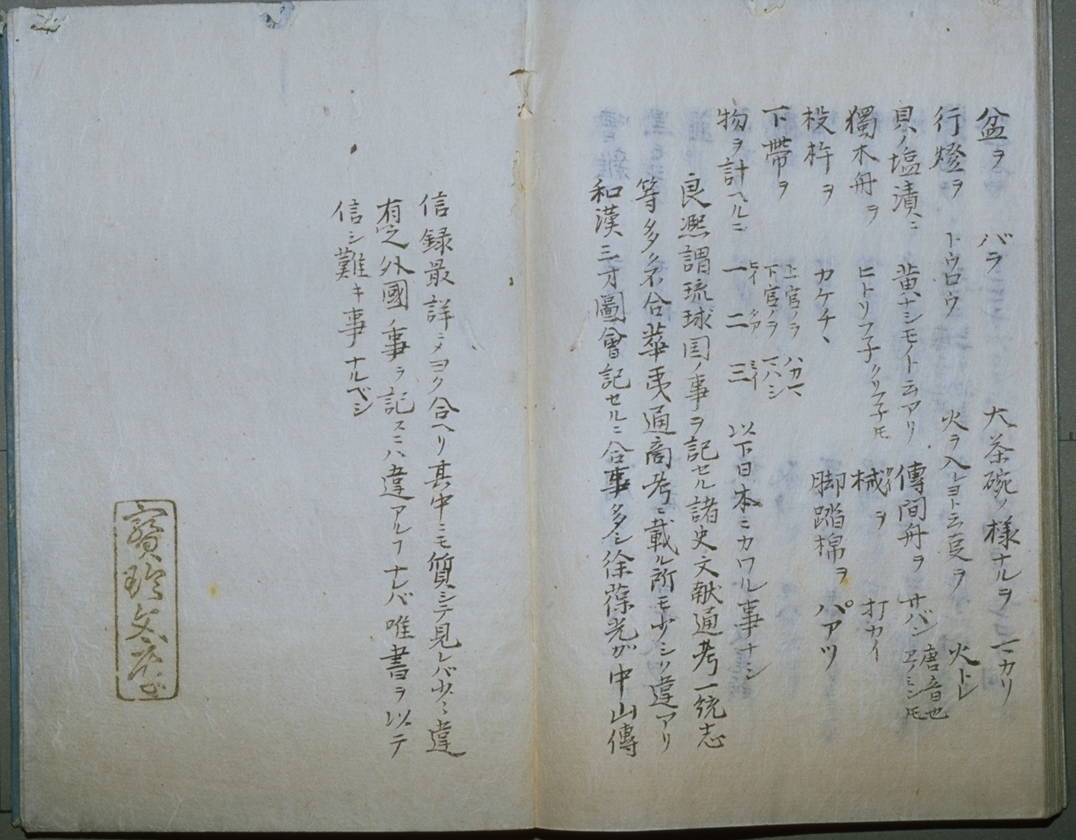 盆ヲ バラ 大茶碗ノ様ナルヲ マカリ
行燈ヲ トウロウ 火ヲ入レヨト云
貝ノ塩漬ニ 傳間舟ヲ サバン 唐音也
獨木舟ヲ 械ヲ 打カイ
投杵ヲ カケチヽ 脚踏棉ヲ パアツ
下帶ヲ 上官ノヲ 下官ノヲ
物ヲ計ヘルニ 一 二 三 以下日本ニカワル事ナシ
良熈謂琉球国ノ事ヲ記セル諸史文献通考一統志
等多ハ不合華夷通商考ニ載ル所モ少シツ違アリ
和漢三才圖會記セルニ合事多シ徐葆光ガ中山傳
信録最詳ニメヨク合ヘリ其中ニモ質シテ見レバ少々違
有之外國ノ事ヲ記スニハ違アルヿナレバ唯書ヲ以テ
信シ難キ事ナルベシ
寶玲文庫